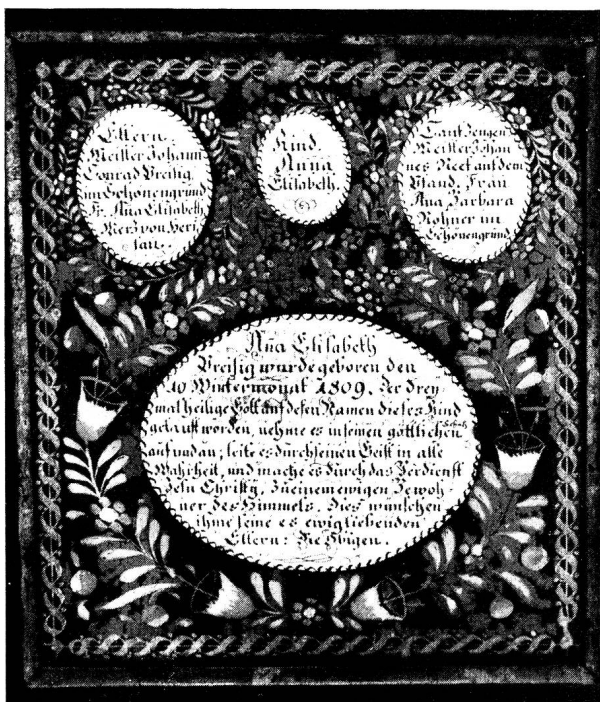 Eltern.
Meister Johann
Conrad Preisig
im Schönengrund
Fr. Ana Elisabeth
Merz von Heri
sau.
Kind.
Anna
Elisabeth.
Taufzeugen
Meister Johan
nes Neef auf dem
Stand. Frau
Ana Barbara
Rohner im
Schönengrund
Aña Elisabeth
Preisig wurde geboren den
10 Wintermonat 1809. Der drey
mal heilige Gott auf desen Namen dieses Kind
getauft worden, nehme es in seinen göttlichen Schutz
auf und an; leite es durch seinen Geist in alle
Wahrheit, und mache es durch das Verdienst
Jesu Christy, zu einem ewigen Bewoh
ner des Himmels. Dies wünschen
ihme seine es ewigliebenden
Eltern: Die Obigen.